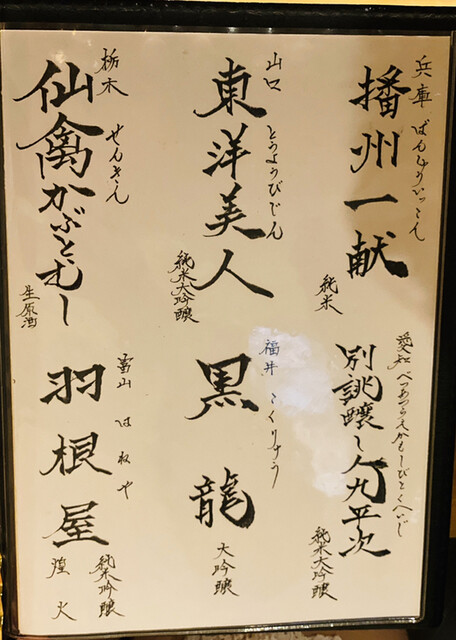 兵庫 ばんしゅういっこん
播州一献
純米
山口 とうようびじん
東洋美人
純米大吟醸
栃木 せんきん
仙禽かぶとむし
生原酒
愛知 べつあつらえかもしびとくへいじ
別誂醸し人九平次
純米大吟醸
福井 こくりゅう
黒龍
大吟醸
富山 はねや
羽根屋
純米吟醸
煌火